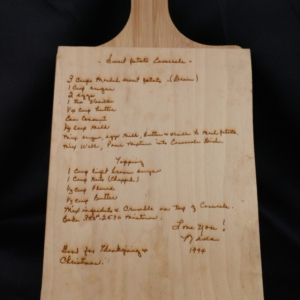 - Sweet Potato Casserole -
3 Cups Mashed sweet potato (Drain)
1 Cup sugar
2 eggs
1 tsp Vanilla
1/2 Cup butter
Can Coconut
1/2 Cup Milk
Mix sugar, eggs Milk, butter & Vanilla to Mashed potato
Mix Well, Pour Mixture into Casserole Dish.
Topping
1 Cup light brown sugar
1 Cup Nuts (Chopped)
1/2 Cup Flour
1/2 Cup Butter
Mix ingredients & Crumble on top of Casserole.
Bake 350° 25-30 Minutes.
Love You!
1994
Good for Thanksgiving &
Christmas.